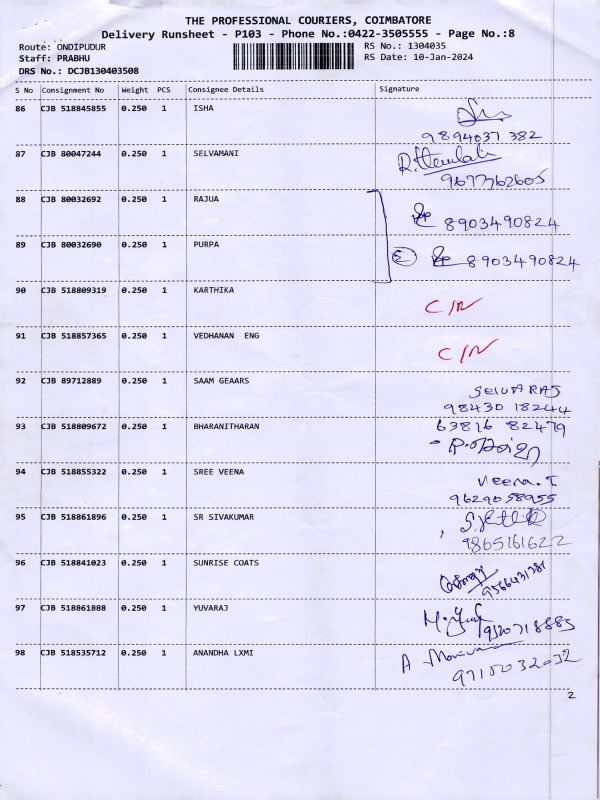 THE PROFESSIONAL COURIERS, COIMBATORE
Delivery Runsheet - P103 - Phone No.:0422-3505555 - Page No.:8
Route: ONDIPUDUR RS No.: 1304035
Staff: PRABHU RS Date: 10-Jan-2024
DRS No.: DCJB130403508
S No Consignment No Weight PCS Consignee Details Signature
86 CJB 518845855 0.250 1 ISHA
9894037 382
87 CJB 80047244 0.250 1 SELVAMANI
9677762605
88 CJB 80032692 0.250 1 RAJUA
8903490824
89 CJB 80032690 0.250 1 PURPA
8903490824
90 CJB 518809319 0.250 1 KARTHIKA
C/N
91 CJB 518857365 0.250 1 VEDHANAN ENG
C/N
92 CJB 89712889 0.250 1 SAAM GEAARS
SELVARAJ
98430 18244
93 CJB 518809672 0.250 1 BHARANITHARAN
63816 82479
94 CJB 518855322 0.250 1 SREE VEENA
Veena. T
9629058955
95 CJB 518861896 0.250 1 SR SIVAKUMAR
9865161622
96 CJB 518841023 0.250 1 SUNRISE COATS
9566431781
97 CJB 518861888 0.250 1 YUVARAJ
98 CJB 518535712 0.250 1 ANANDHA LXMI
9715032032
2